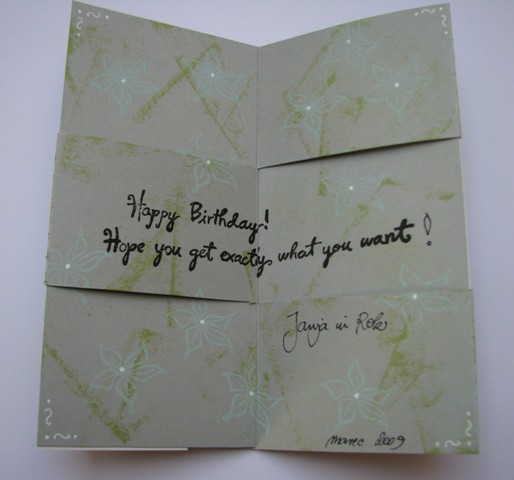 Happy Birthday!
Hope you get exactly what you want!
Janja in Rok
marec 2009